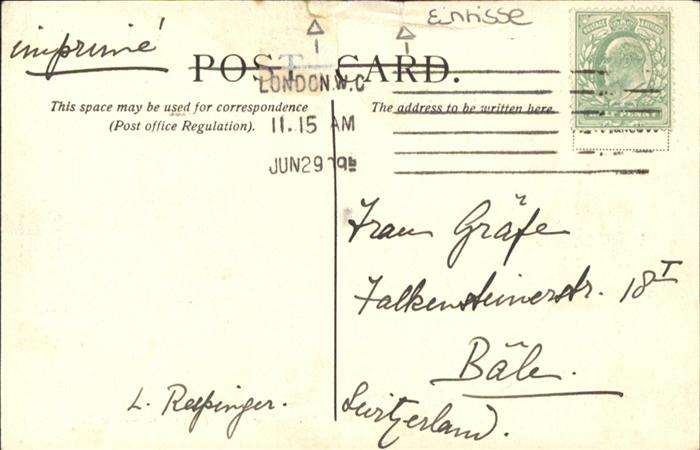 imprimé
Entisse
POST CARD.
LONDON.W.C
11.15 AM
JUN 29
This space may be used for correspondence
(Post office Regulation).
The address to be written here
Frau Gräfe
Falkensteinerstr. 18 I
Bâle.
Switzerland.
L. Respinger.